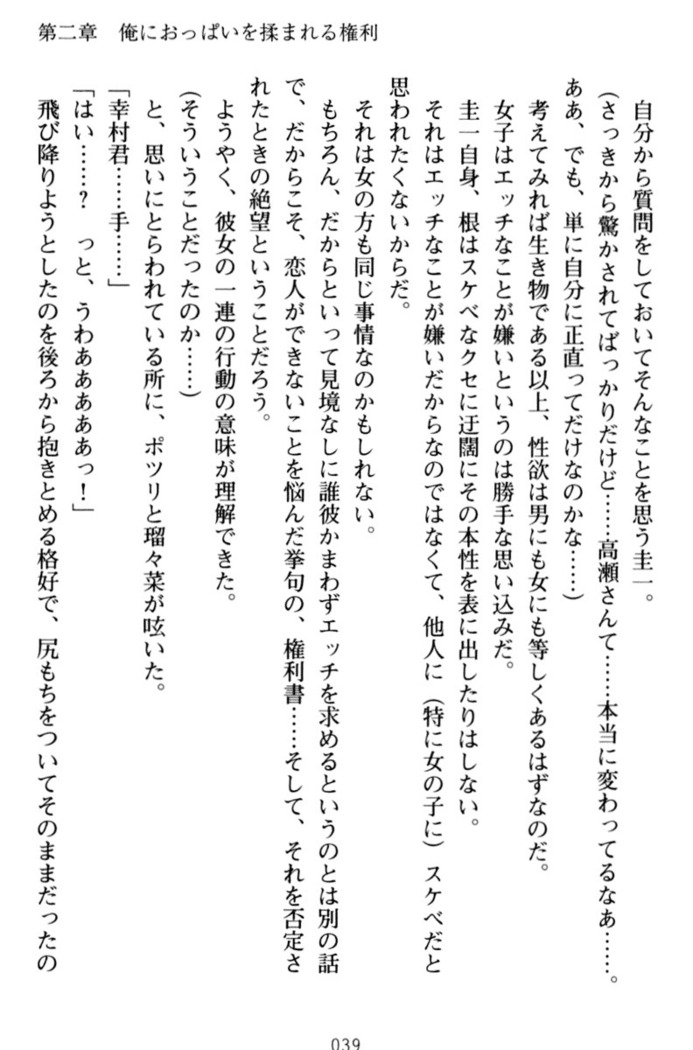 第二章　俺におっぱいを揉まれる権利
自分から質問をしておいてそんなことを思う圭一。
(さっきから驚かされてばっかりだけど……高瀬さんて……本当に変わってるなぁ……。
ああ、でも、単に自分に正直ってだけなのかな……)
考えてみれば生き物である以上、性欲は男にも女にも等しくあるはずなのだ。
女子はエッチなことが嫌いというのは勝手な思い込みだ。
圭一自身、根はスケベなクセに迂闊にその本性を表に出したりはしない。
それはエッチなことが嫌いだからなのではなくて、他人に（特に女の子に）スケベだと
思われたくないからだ。
それは女の方も同じ事情なのかもしれない。
もちろん、だからといって見境なしに誰彼かまわずエッチを求めるというのとは別の話
で、だからこそ、恋人ができないことを悩んだ挙句の、権利書……そして、それを否定さ
れたときの絶望ということだろう。
ようやく、彼女の一連の行動の意味が理解できた。
(そういうことだったのか……)
と、思いにとらわれている所に、ポツリと瑠々菜が呟いた。
「幸村君……手……」
「はい……？　っと、うわああああぁっ！」
飛び降りようとしたのを後ろから抱きとめる格好で、尻もちをついてそのままだったの
039